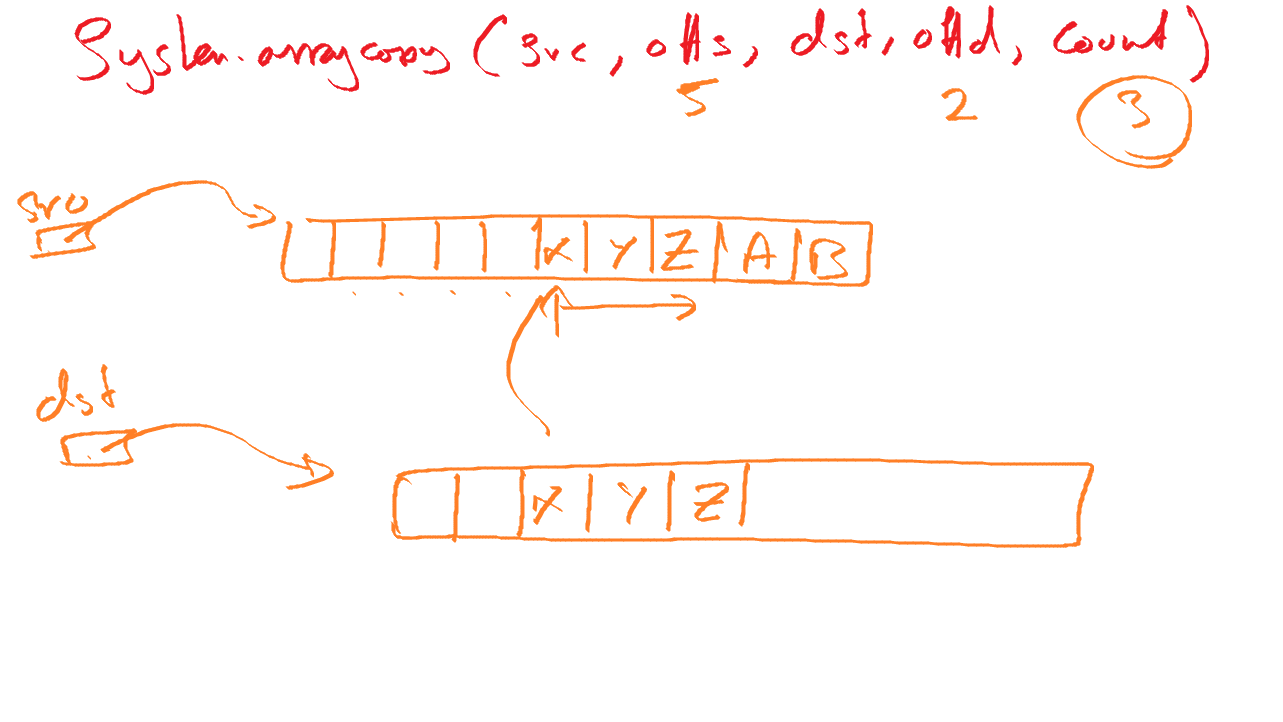 System.arraycopy (src, offs, dst, offd, count)
5 2 3
src
X Y Z A B
dst
X Y Z